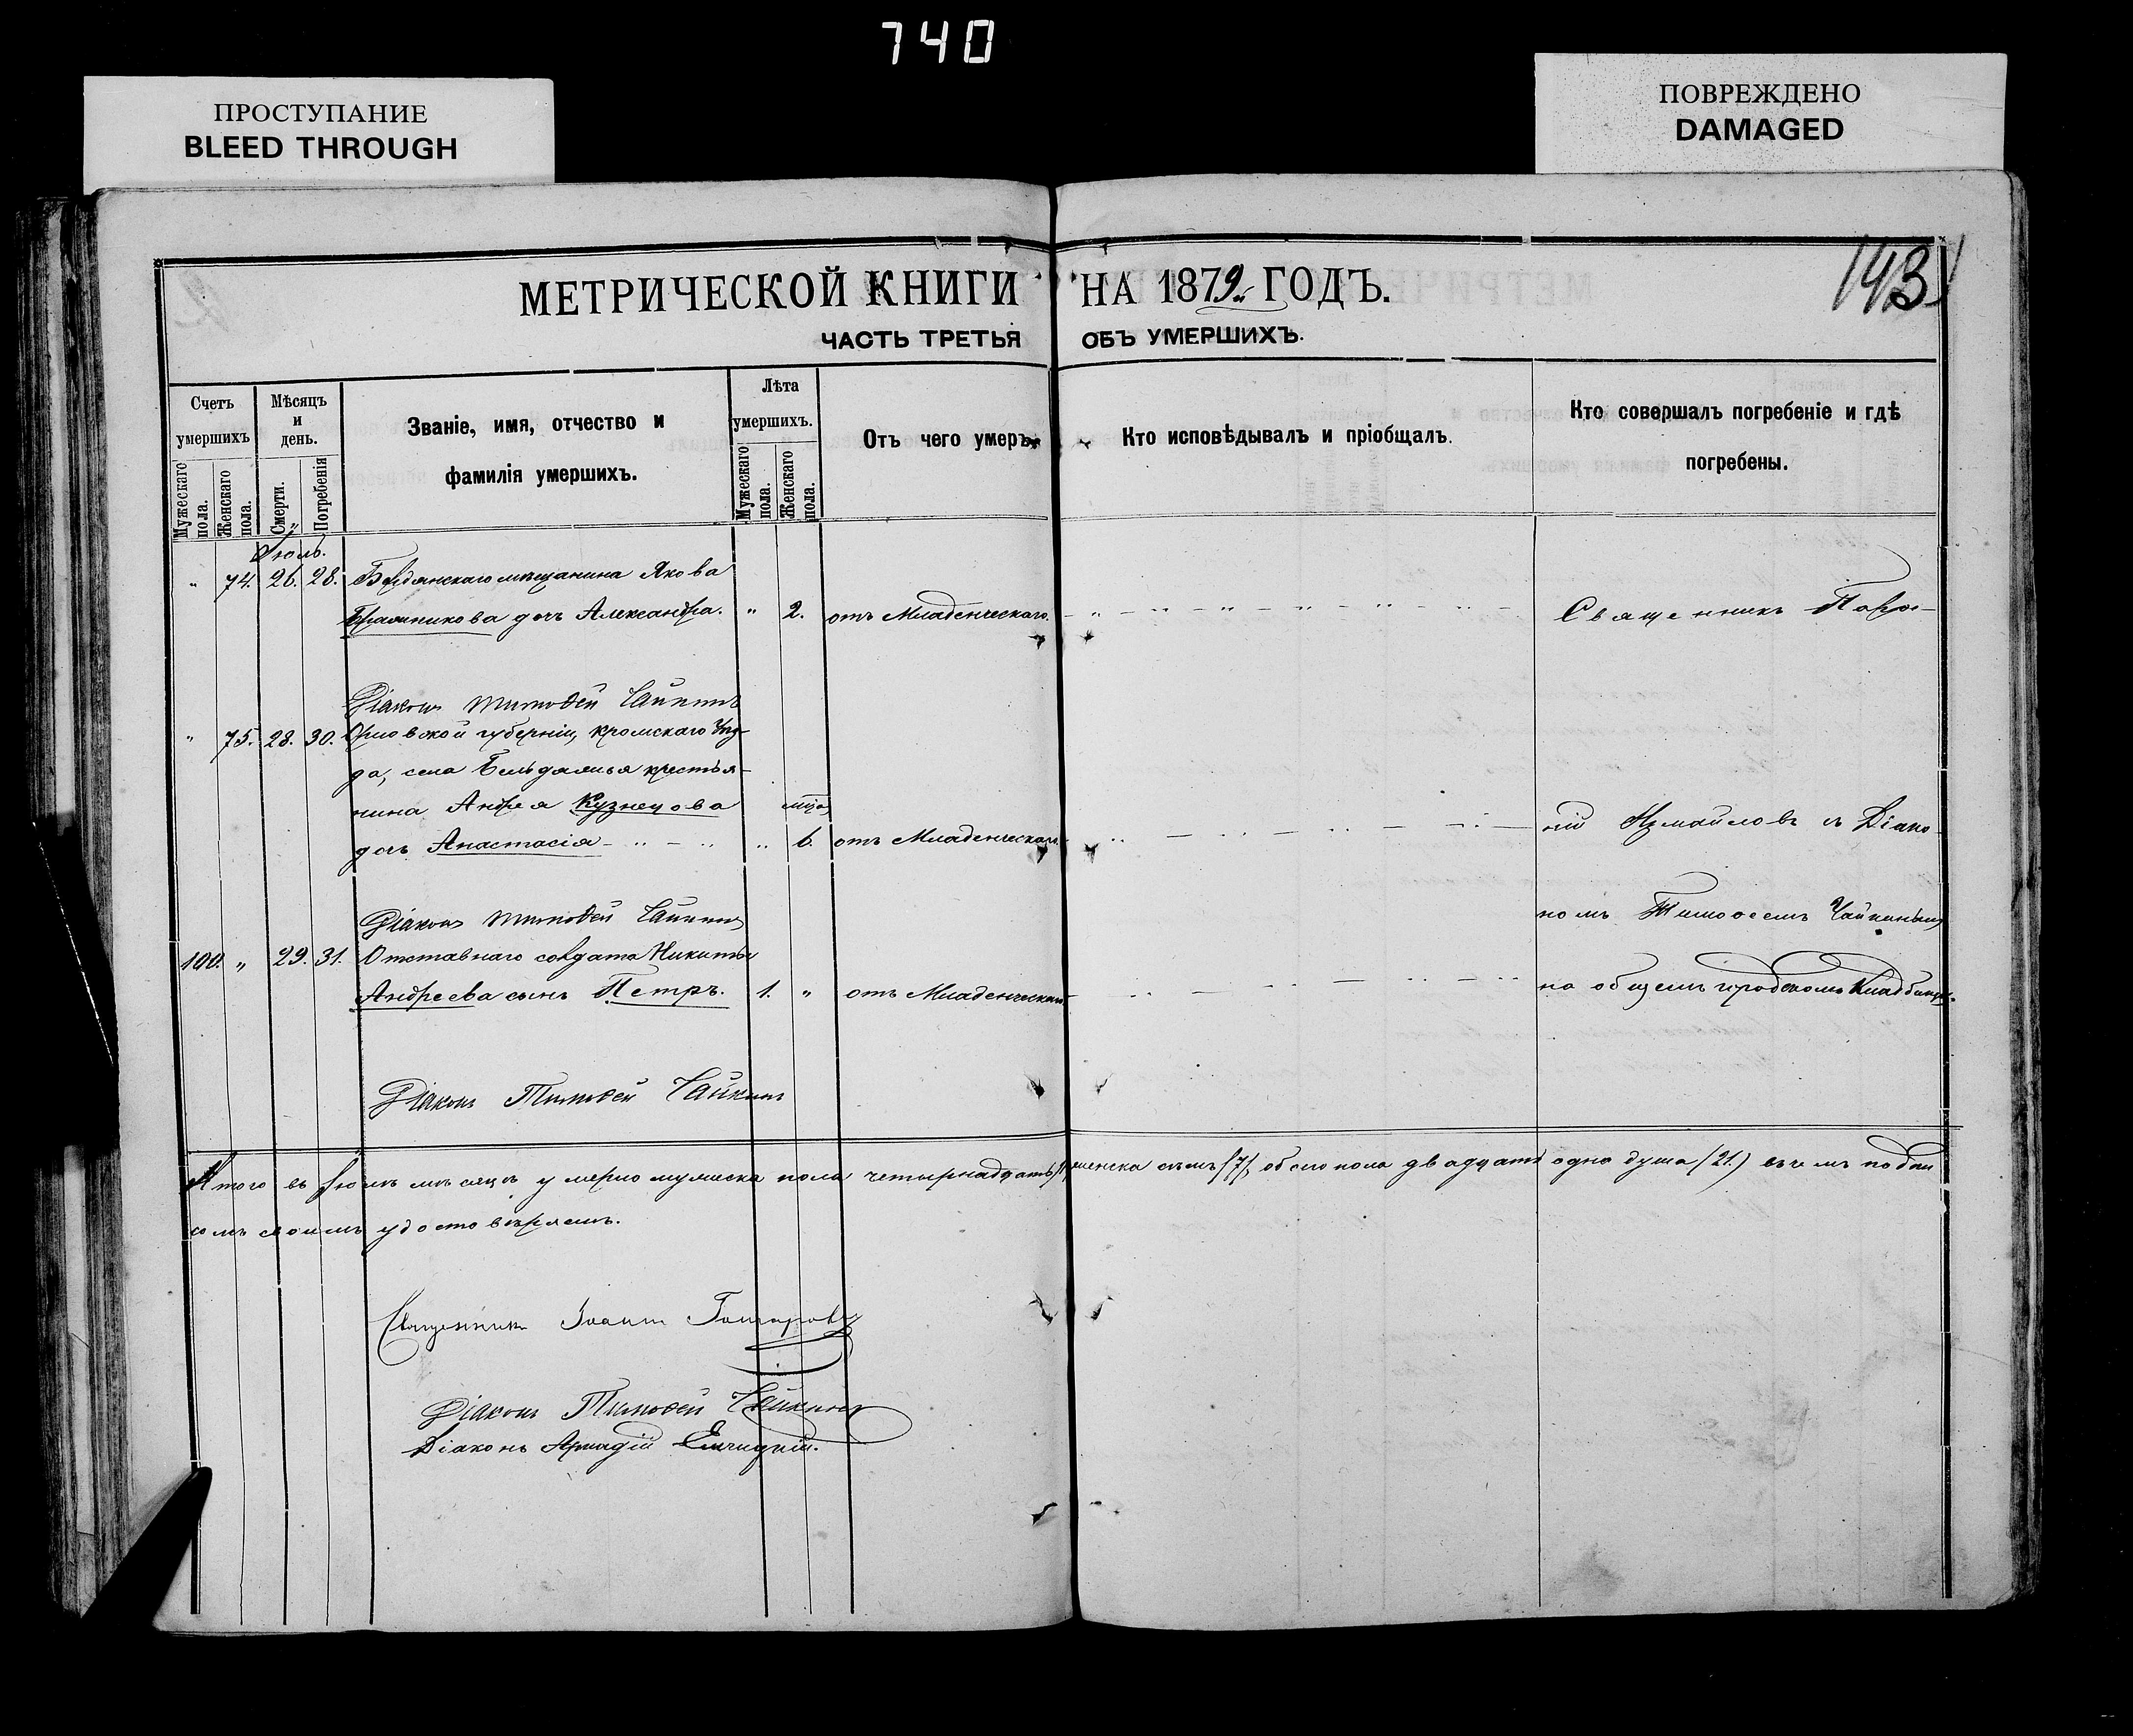 740
ПРОСТУПАНИЕ
BLEED THROUGH
ПОВРЕЖДЕНО
DAMAGED
143
МЕТРИЧЕСКОЙ КНИГИ НА 1879 ГОДЪ.
ЧАСТЬ ТРЕТЬЯ ОБЪ УМЕРШИХЪ.
Счетъ умершихъ
Мужескаго пола.
Женскаго пола.
Мѣсяцъ и день.
Смерти.
Погребенія
Званіе, имя, отчество и
фамилія умершихъ.
Лѣта умершихъ.
Мужескаго пола.
Женскаго пола.
Отъ чего умеръ.
Кто исповѣдывалъ и пріобщалъ.
Кто совершалъ погребеніе и гдѣ
погребены.
Іюль.
" 74. 26. 28. Бердянскаго мѣщанина Якова
дочь Александра. " 2. отъ Младенческаго. Священникъ
Діаконъ Тимофей Чайкинъ
" 75. 28. 30. Орловской губерніи, кромскаго Уѣз-
да, села Бельдяжья крестья-
нина Андрея Кузнецова мѣц
дочь Анастасія " 6. отъ Младенческаго
ній Измайловъ съ Діако-
Діаконъ Тимофей Чайкинъ
номъ Тимофеемъ Чайкинымъ
100. " 29. 31. Отставнаго солдата Никиты
Андреева сынъ Петръ. 1. " отъ Младенческаго
на общемъ городскомъ Кладбищѣ.
Діаконъ Тимофей Чайкинъ
Итого въ Іюлѣ мѣсяцѣ умерло мужеска пола четырнадцать женска семь (7), обоего пола двадцать одна душа (21.) въ чемъ подпи
сомъ своимъ удостовѣряемъ.
Священникъ Іоаннъ
Діаконъ Тимофей Чайкинъ
Діаконъ Аркадій